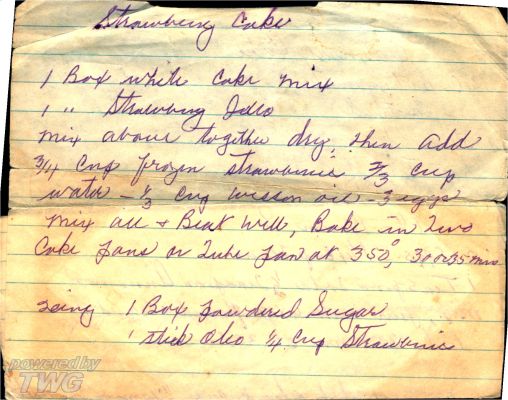 Strawberry Cake
1 Box white Cake mix
1 " Strawberry Jello
mix above together dry, then add
3/4 Cup frozen strawberries 2/3 Cup
water - 1/3 Cup Wesson oil - 3 eggs
Mix all + Beat Well, Bake in Two
Cake Pans or Tube Pan at 350°, 30 or 35 mins
Icing 1 Box Powdered Sugar
1 stick Oleo 1/4 Cup Strawberries
powered by
TWG